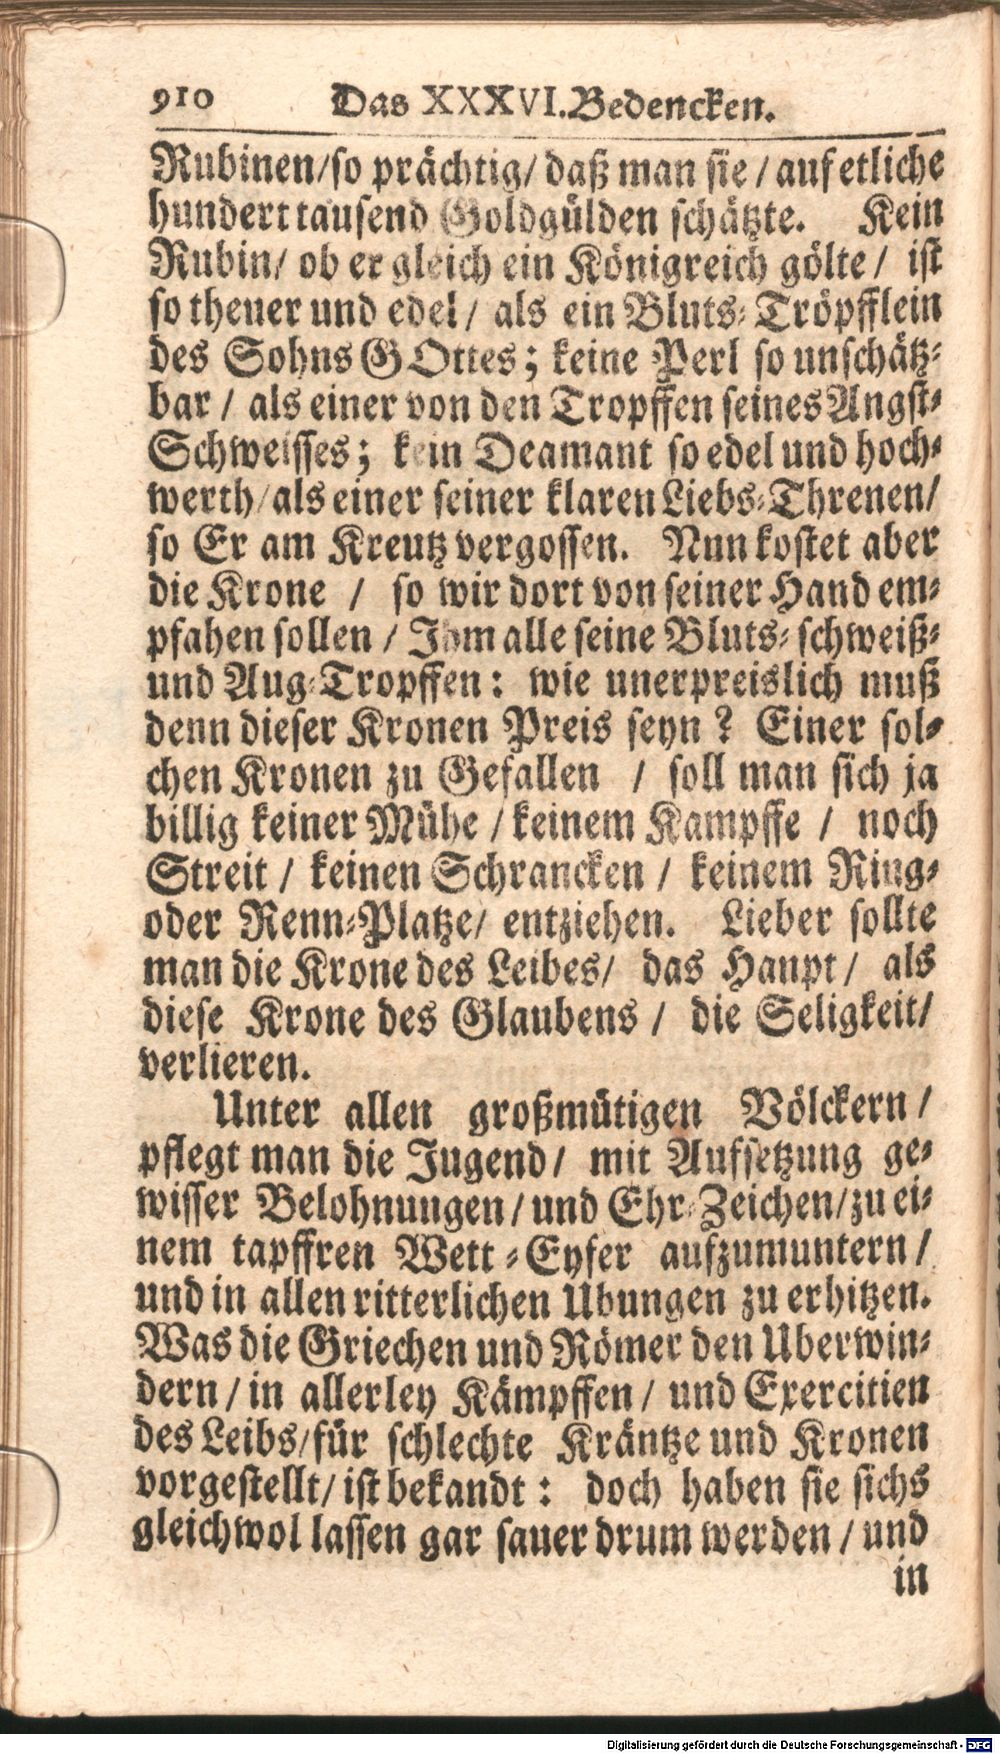 910 Das XXXVI. Bedencken.
Rubinen/so prächtig/ daß man sie / auf etliche
hundert tausend Goldgülden schätzte. Kein
Rubin/ ob er gleich ein Königreich gölte / ist
so theuer und edel / als ein Bluts-Tröpfflein
des Sohns GOttes; keine Perl so unschätz-
bar / als einer von den Tropffen seines Angst-
Schweisses; kein Deamant so edel und hoch-
werth/als einer seiner klaren Liebs-Threnen/
so Er am Kreutz vergossen. Nun kostet aber
die Krone / so wir dort von seiner Hand em-
pfahen sollen / Ihm alle seine Bluts- schweiß-
und Aug-Tropffen: wie unerpreislich muß
denn dieser Kronen Preis seyn? Einer sol-
chen Kronen zu Gefallen / soll man sich ja
billig keiner Mühe / keinem Kampffe / noch
Streit / keinen Schrancken / keinem Ring-
oder Renn-Platze/ entziehen. Lieber sollte
man die Krone des Leibes/ das Haupt / als
diese Krone des Glaubens / die Seligkeit/
verlieren.
Unter allen großmütigen Völckern /
pflegt man die Jugend / mit Aufsetzung ge-
wisser Belohnungen / und Ehr-Zeichen/zu ei-
nem tapffren Wett-Eyfer aufzumuntern /
und in allen ritterlichen Ubungen zu erhitzen.
Was die Griechen und Römer den Uberwin-
dern / in allerley Kämpffen / und Exercitien
des Leibs/für schlechte Kräntze und Kronen
vorgestellt/ ist bekandt: doch haben sie sichs
gleichwol lassen gar sauer drum werden / und
in
Digitalisierung gefördert durch die Deutsche Forschungsgemeinschaft - DFG